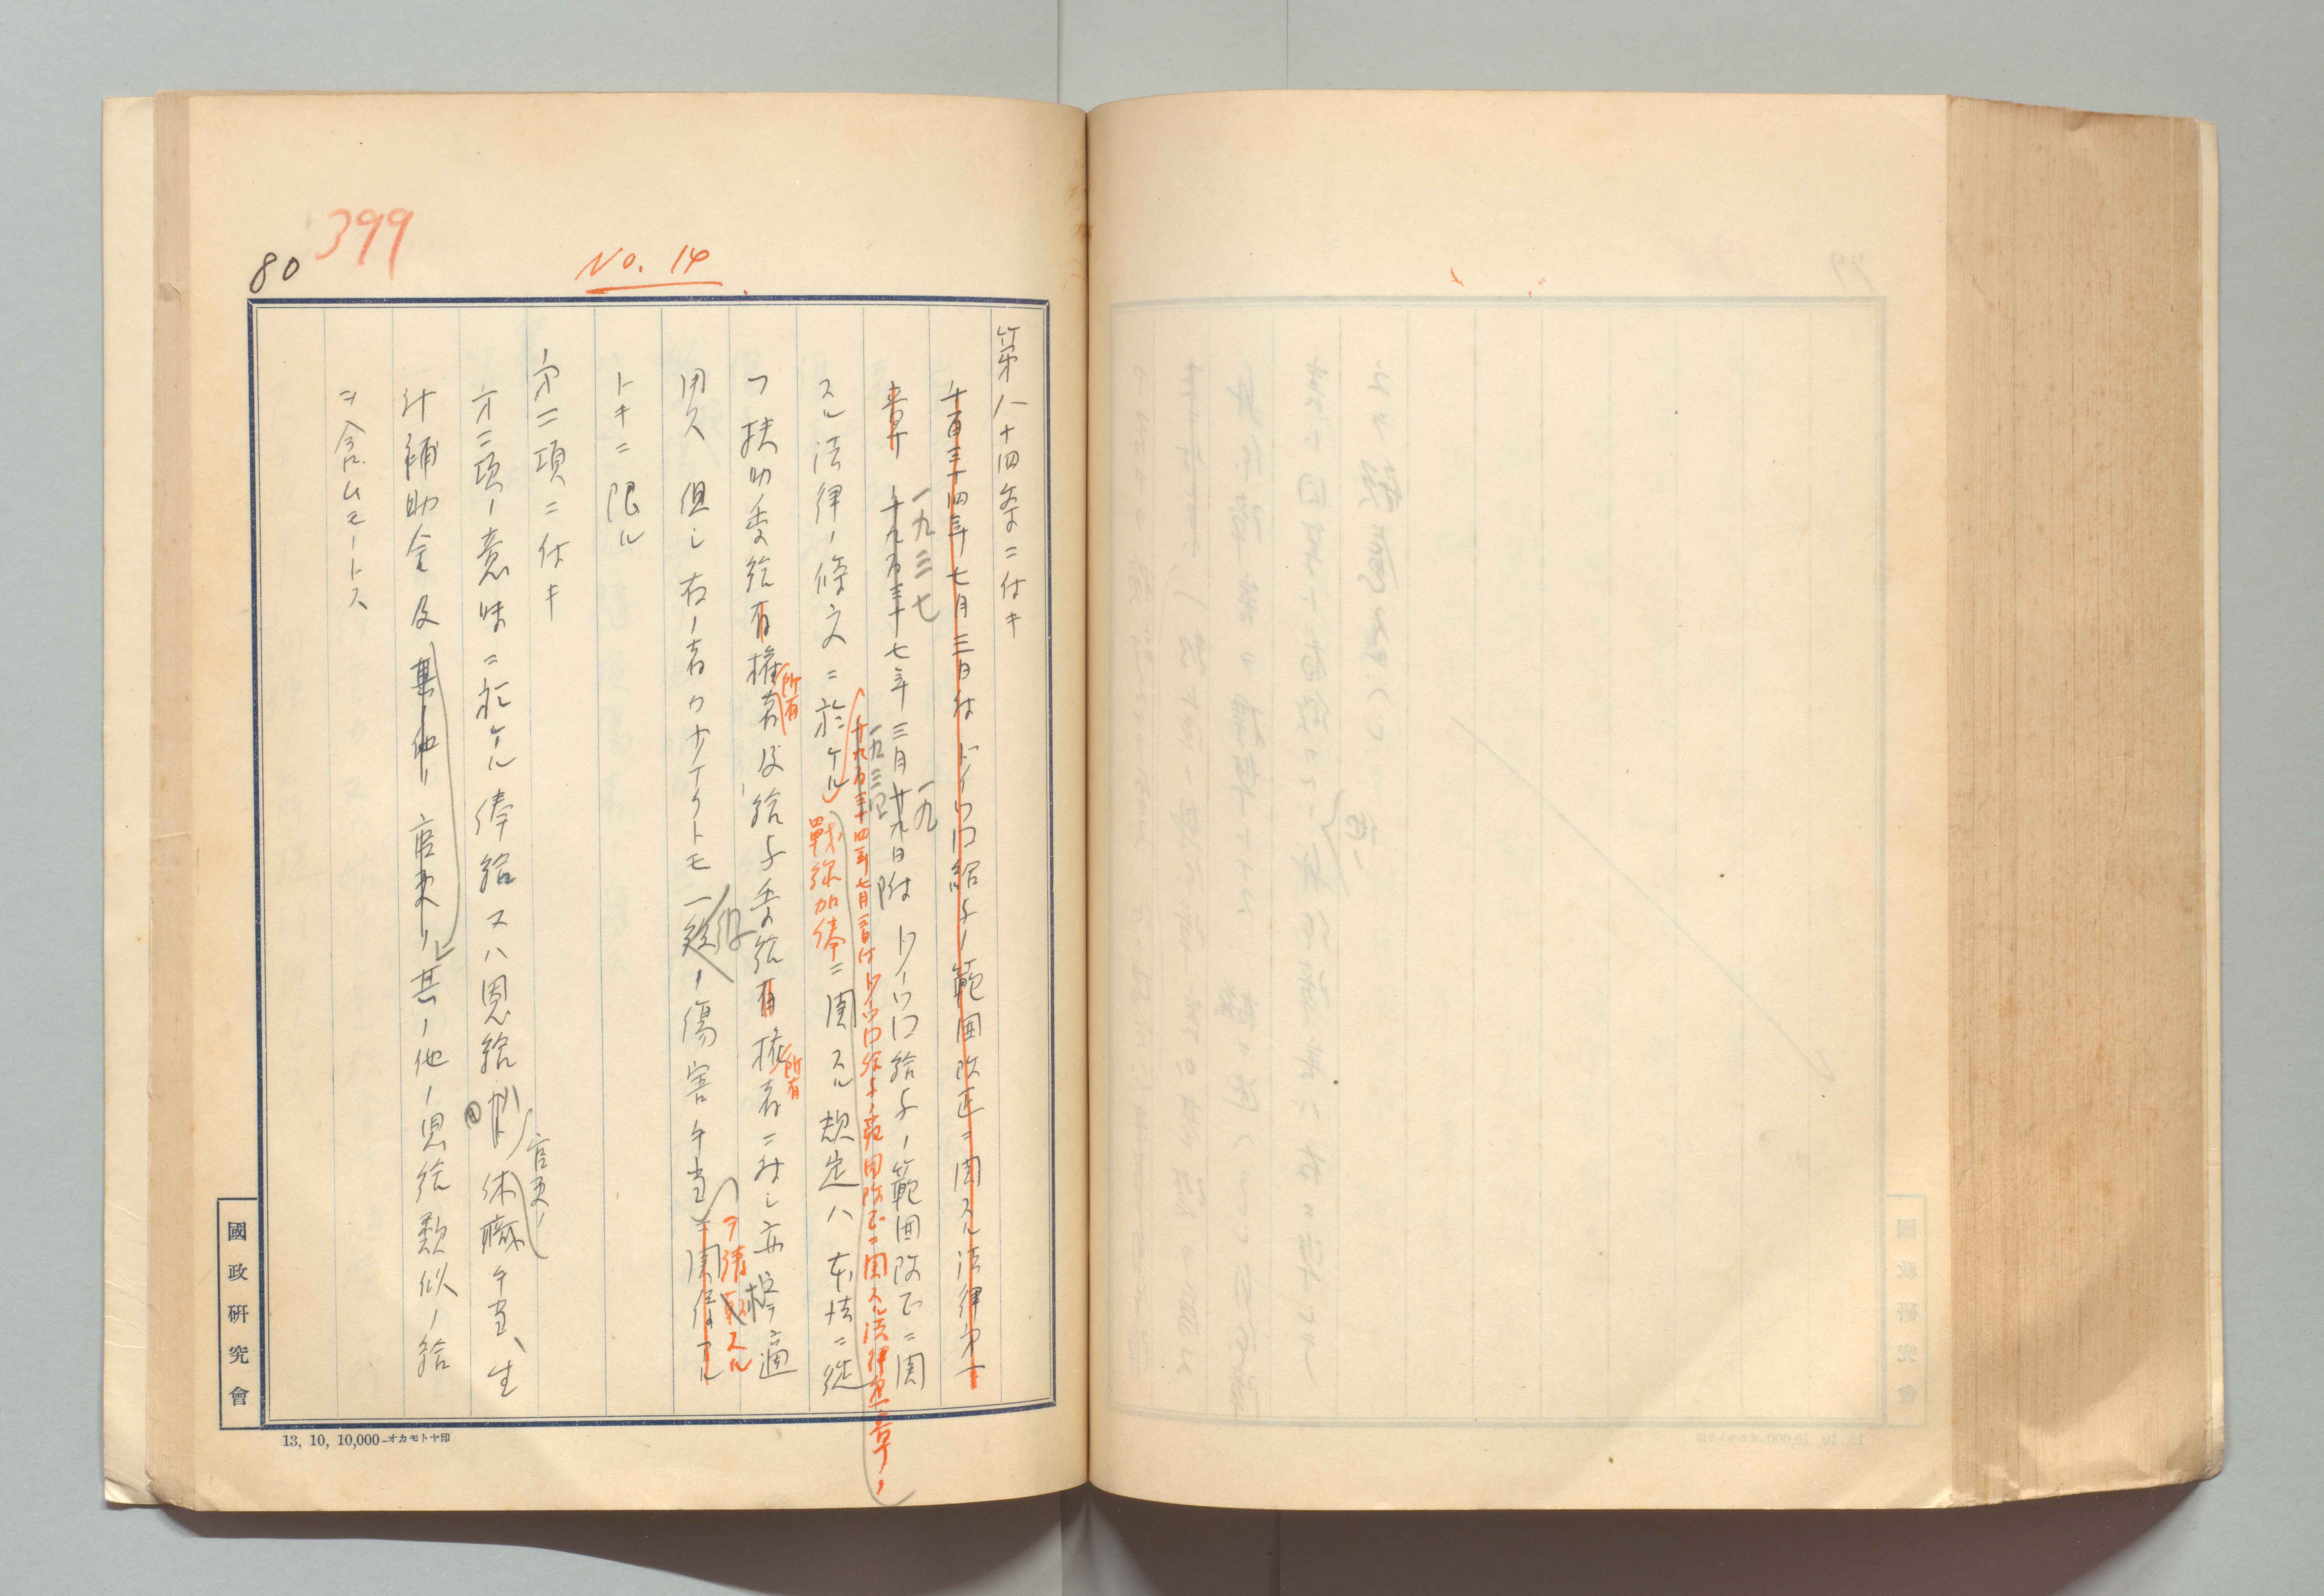 399
80
No. 14
第八十四条ニ付キ
千九百三十四年七月三日付ドイツ国給与ノ範囲改正ニ関スル法律第一
章ノ 千九百三十七年三月廿九日附ドイツ国給与ノ範囲改正ニ関
一九三七
一九
千九百三十四年七月三日付ドイツ国給与ノ範囲改正ニ関スル法律第一章ノ
一九三四
スル法律ノ條文ニ於ケル戰線加俸ニ関スル規定ハ本法ニ従
フ扶助受給有権者及給与受給有権者ニ対シ亦適
所有
所有
用ス 但シ右ノ者カ少ナクトモ一級ノ傷害手当ニ関係アル
ヲ請求スル
トキニ限ル
第二項ニ付キ
第二項ノ意味ニ於ケル俸給又ハ恩給 休職手当、生
官吏ノ
計補助金及其ノ他ノ官吏ノ其ノ他ノ恩給類似ノ給
ヲ含ムモノトス
國政研究會
13, 10, 10,000-オカモトヤ印